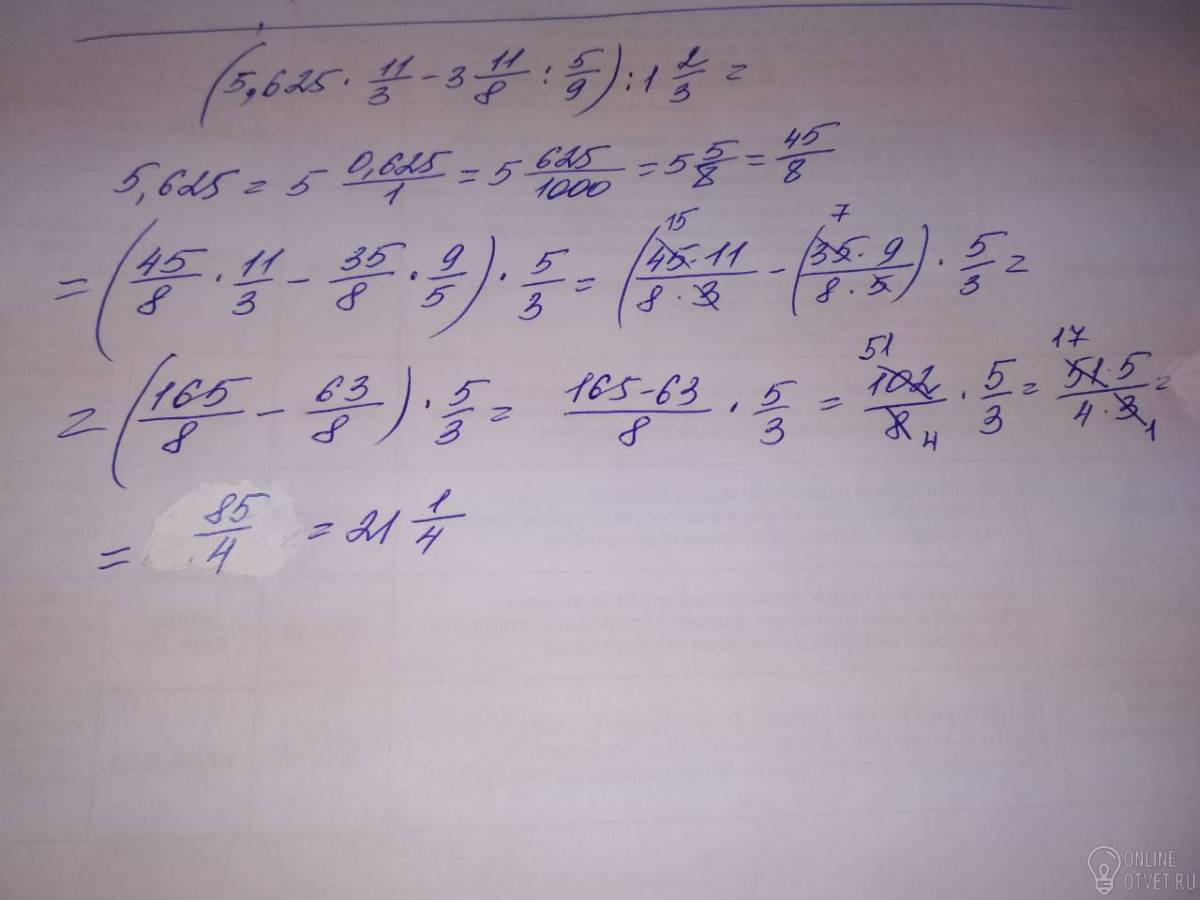 (5,625 · 11/3 - 3 11/8 : 5/9) : 1 2/3 =
5,625 = 5 0,625/1 = 5 625/1000 = 5 5/8 = 45/8
= (45/8 · 11/3 - 35/8 · 9/5) · 5/3 = (45·11/8·3 - (35·9/8·5) · 5/3 =
15 7
= (165/8 - 63/8) · 5/3 = 165-63/8 · 5/3 = 102/8 · 5/3 = 51·5/4·3 =
51 4 17 1
= 85/4 = 21 1/4
ONLINE
OTVET.RU